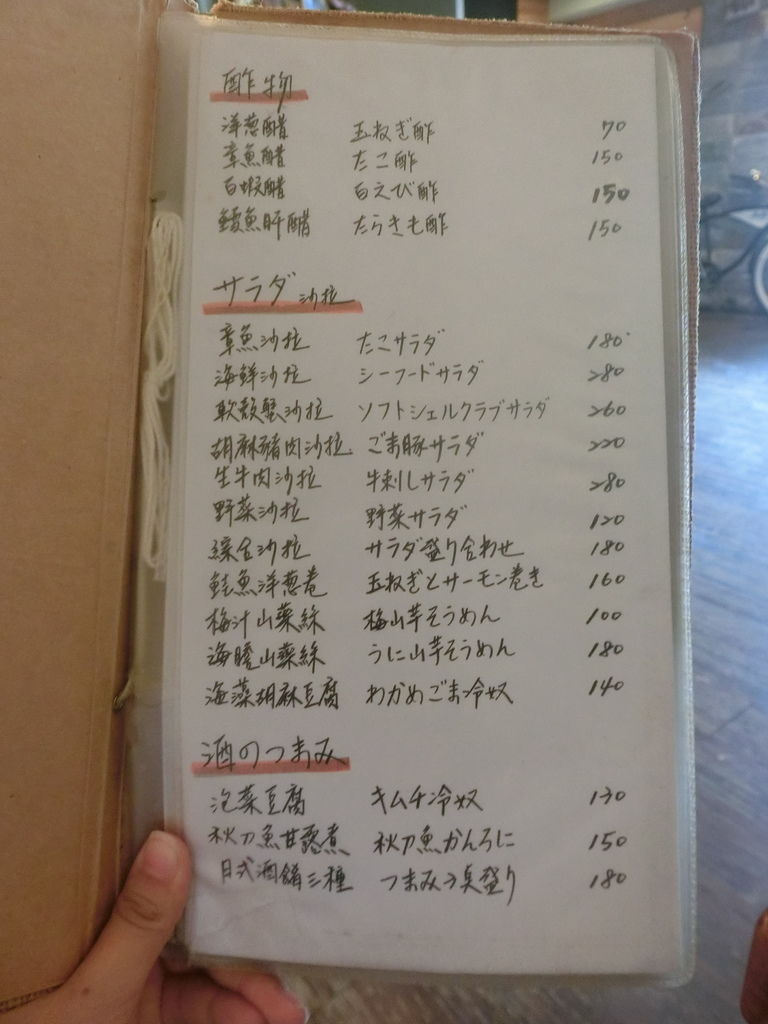 酢物
洋葱醋 玉ねぎ酢 70
章魚醋 たこ酢 150
白蝦醋 白えび酢 150
鱈魚肝醋 たらきも酢 150
サラダ 沙拉
章魚沙拉 たこサラダ 180
海鮮沙拉 シーフードサラダ 280
軟殼蟹沙拉 ソフトシェルクラブサラダ 260
胡麻豬肉沙拉 ごま豚サラダ 220
生牛肉沙拉 牛刺しサラダ 280
野菜沙拉 野菜サラダ 120
綜合沙拉 サラダ盛り合わせ 180
鮭魚洋葱卷 玉ねぎとサーモン巻き 160
梅汁山藥絲 梅山芋そうめん 100
海膽山藥絲 うに山芋そうめん 180
海藻胡麻豆腐 わかめごま冷奴 140
酒のつまみ
泡菜豆腐 キムチ冷奴 130
秋刀魚甘露煮 秋刀魚かんろに 150
日式酒餚三種 つまみ3点盛り 180